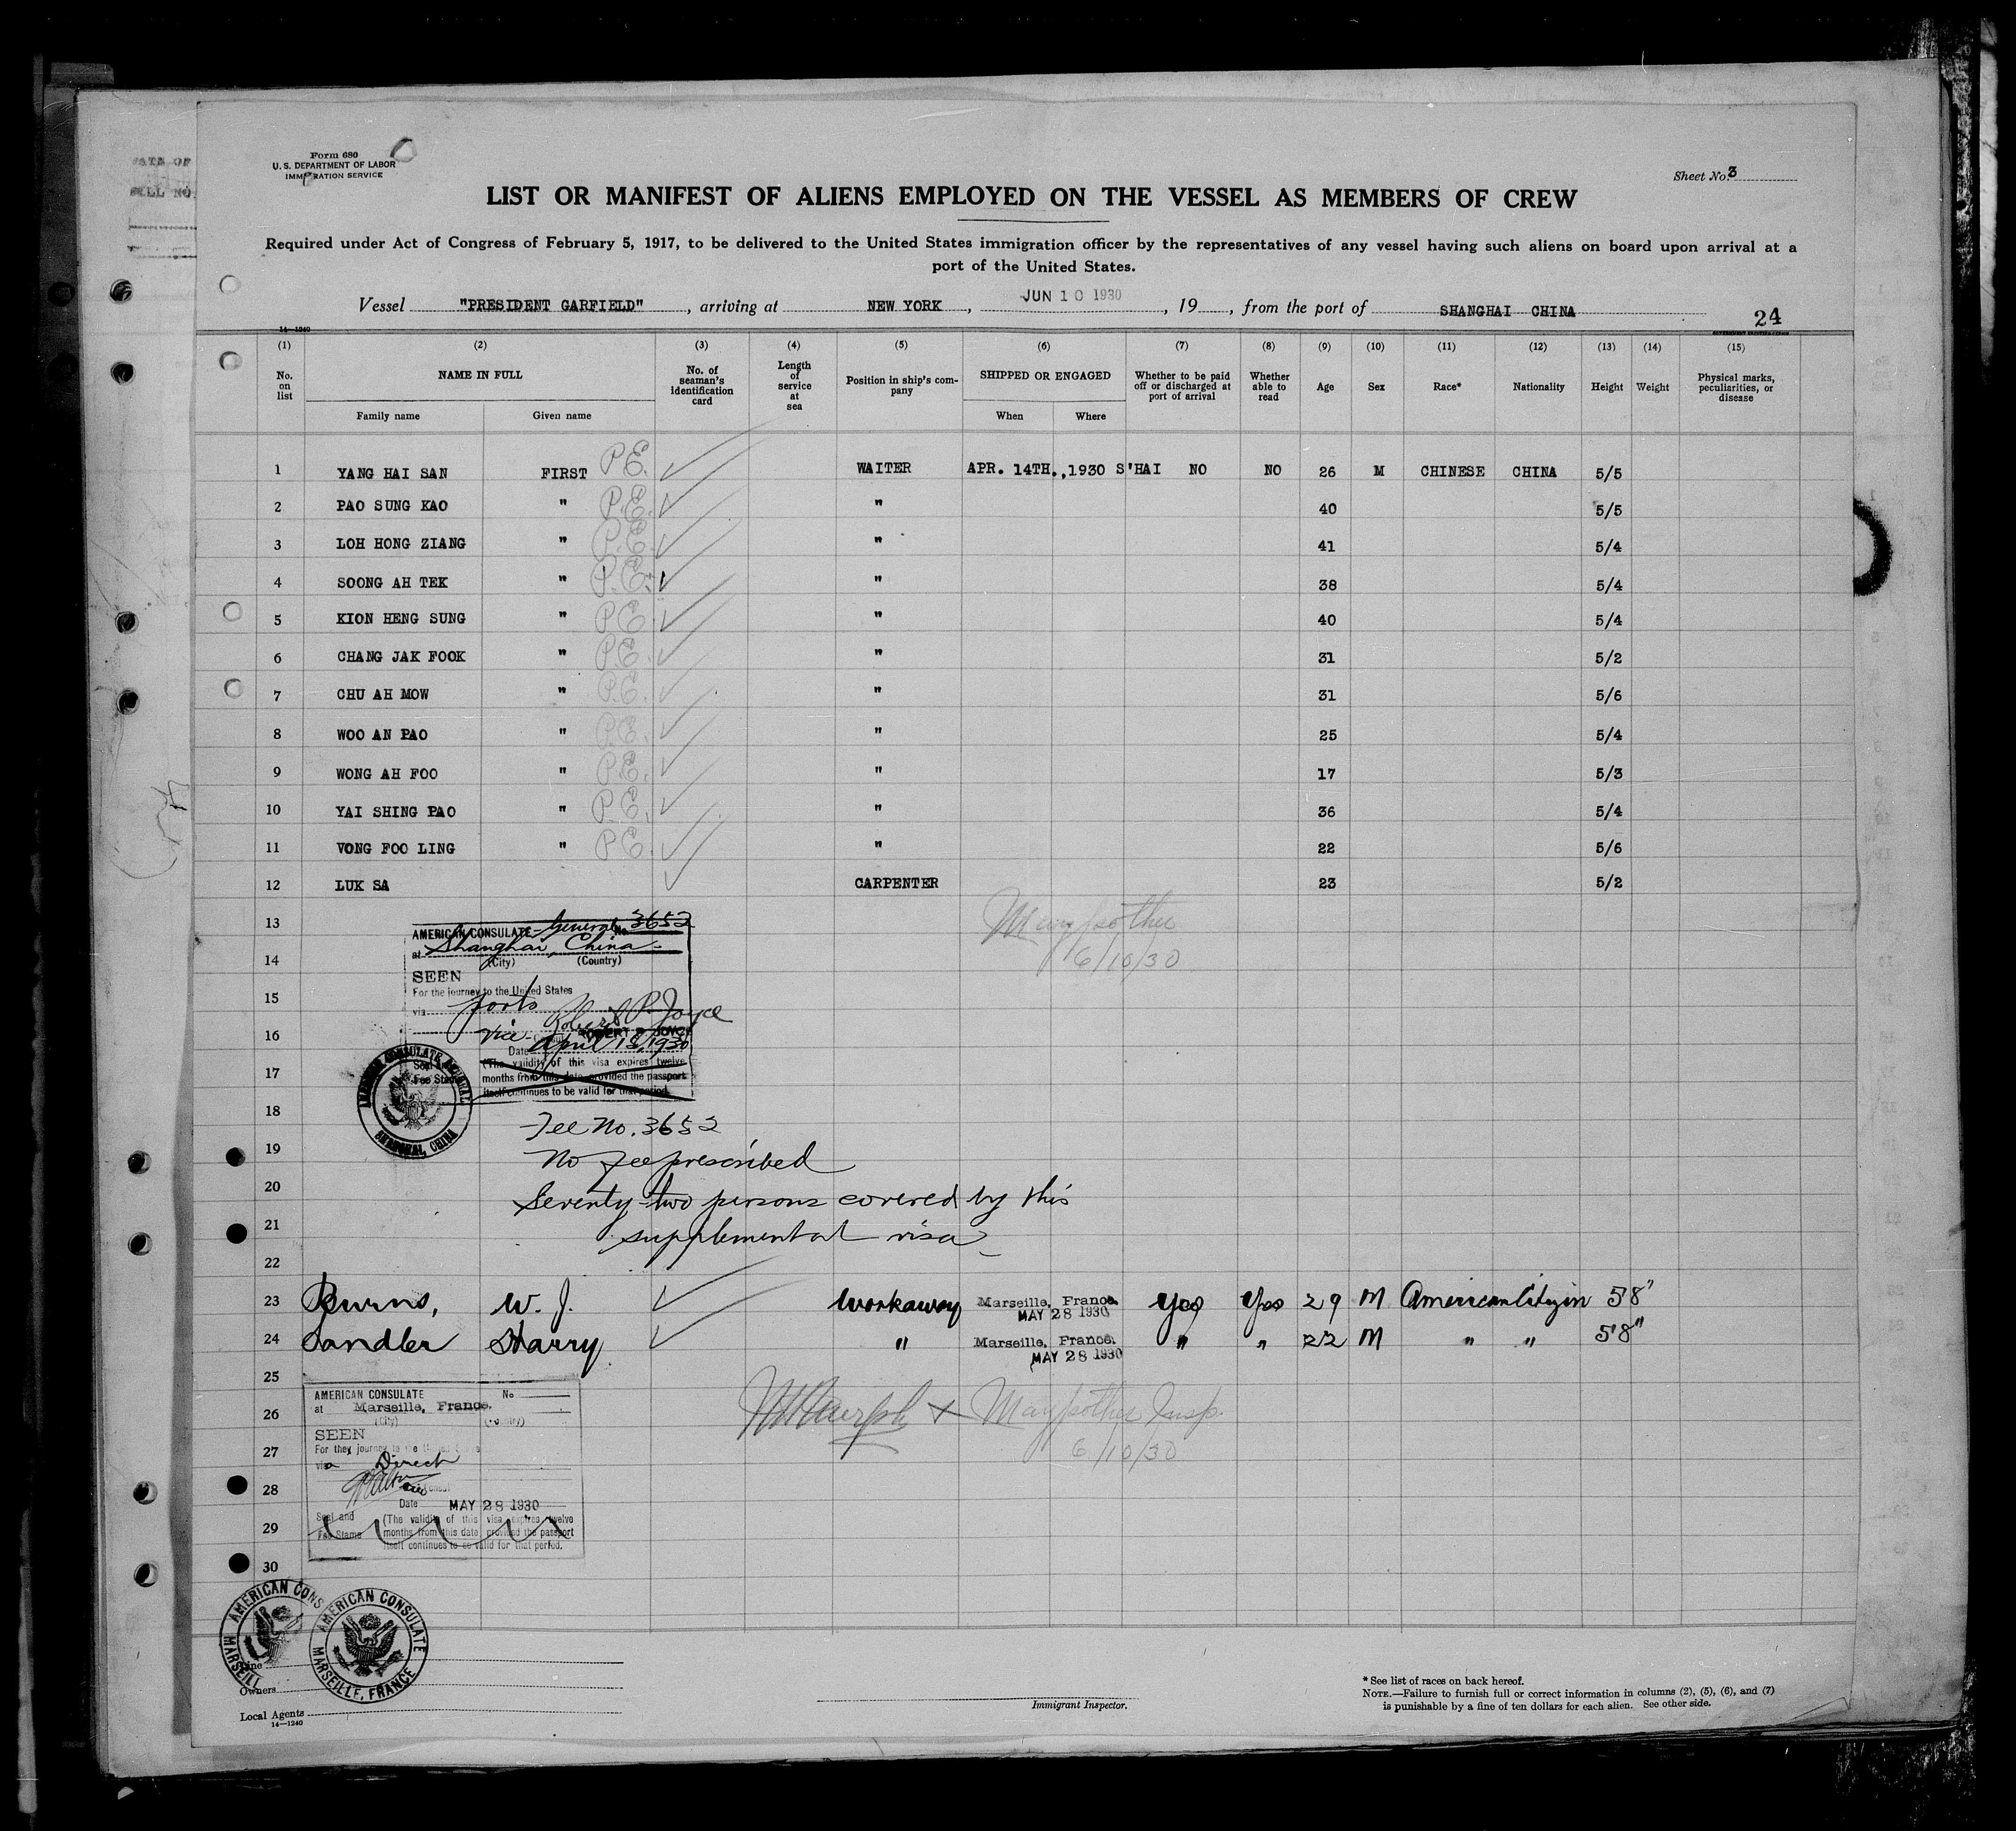 Form 680
U. S. DEPARTMENT OF LABOR
IMMIGRATION SERVICE
Sheet No. 3
LIST OR MANIFEST OF ALIENS EMPLOYED ON THE VESSEL AS MEMBERS OF CREW
Required under Act of Congress of February 5, 1917, to be delivered to the United States immigration officer by the representatives of any vessel having such aliens on board upon arrival at a
port of the United States.
Vessel "PRESIDENT GARFIELD", arriving at NEW YORK, JUN 10 1930, 19, from the port of SHANGHAI CHINA
24
14—1240
(1) (2) (3) (4) (5) (6) (7) (8) (9) (10) (11) (12) (13) (14) (15)
No. on list NAME IN FULL No. of seaman's identification card Length of service at sea Position in ship's company SHIPPED OR ENGAGED Whether to be paid off or discharged at port of arrival Whether able to read Age Sex Race* Nationality Height Weight Physical marks, peculiarities, or disease
Family name Given name When Where
1 YANG HAI SAN FIRST P.E. WAITER APR. 14TH.,1930 S'HAI NO NO 26 M CHINESE CHINA 5/5
2 PAO SUNG KAO " P.E. " 40 5/5
3 LOH HONG ZIANG " P.E. " 41 5/4
4 SOONG AH TEK " P.E. " 38 5/4
5 KION HENG SUNG " P.E. " 40 5/4
6 CHANG JAK FOOK " P.E. " 31 5/2
7 CHU AH MOW " P.E. " 31 5/6
8 WOO AN PAO " P.E. " 25 5/4
9 WONG AH FOO " P.E. " 17 5/3
10 YAI SHING PAO " P.E. " 36 5/4
11 VONG FOO LING " P.E. " 22 5/6
12 LUK SA CARPENTER 23 5/2
13
14
15
16
17
18
19
20
21
22
AMERICAN CONSULATE General No. 3652
at Shanghai, China
(City) (Country)
SEEN
For the journey to the United States
via ports
Robert P. Joyce
Vice ROBERT P. JOYCE
Date April 18, 1930
(The validity of this visa expires twelve
months from this date provided the passport
itself continues to be valid for that period.
Seal and
Fee Stamp
AMERICAN CONSULATE GENERAL
SHANGHAI, CHINA
6/10/30
Fee No. 3652
No fee prescribed
Seventy-two persons covered by this
supplemental visa
23 Burns, W. J. Workaway Marseille, France. MAY 28 1930 Yes Yes 29 M American Citizen 5'8"
24 Sandler Harry " Marseille, France. MAY 28 1930 " " 22 M " " 5'8"
25
26
27
28
29
30
AMERICAN CONSULATE No
at Marseille, France.
(City) (Country)
SEEN
For the journey to the United States
via Direct
Date MAY 28 1930
Seal and
Fee Stamp
(The validity of this visa expires twelve
months from this date provided the passport
itself continues to be valid for that period.
Insp.
6/10/30
AMERICAN CONS
MARSEILL
AMERICAN CONSULATE
MARSEILLE, FRANCE
Line
Owners
Local Agents
14—1240
Immigrant Inspector.
* See list of races on back hereof.
NOTE.—Failure to furnish full or correct information in columns (2), (5), (6), and (7)
is punishable by a fine of ten dollars for each alien. See other side.